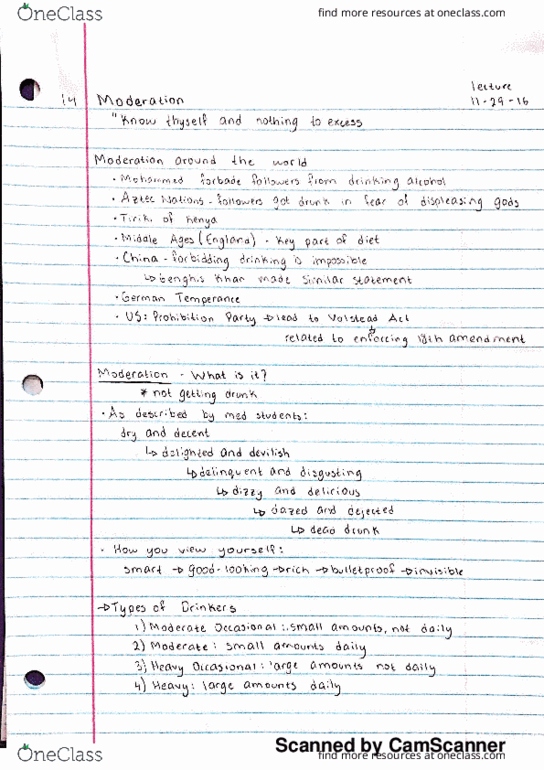 OneClass
find more resources at oneclass.com
lecture
14 Moderation 11-29-16
"Know thyself and nothing to excess
Moderation around the world
• Mohammed forbade followers from drinking alcohol
• Aztec Nations - followers got drunk in fear of displeasing gods
• Tiriki of Kenya
• Middle Ages (England) - Key part of diet
• China - forbidding drinking is impossible
↳ Genghis Khan made similar statement
• German Temperance
• US: Prohibition Party → lead to Volstead Act
related to enforcing 18th amendment
Moderation - What is it?
* not getting drunk
• As described by med students:
dry and decent
↳ delighted and devilish
↳ delinquent and disgusting
↳ dizzy and delirious
↳ dazed and dejected
↳ dead drunk
• How you view yourself:
smart → good-looking → rich → bulletproof → invisible
→ Types of Drinkers
1) Moderate Occasional: small amounts, not daily
2) Moderate: small amounts daily
3) Heavy Occasional: large amounts not daily
4) Heavy: large amounts daily
Scanned by CamScanner
OneClass
find more resources at oneclass.com